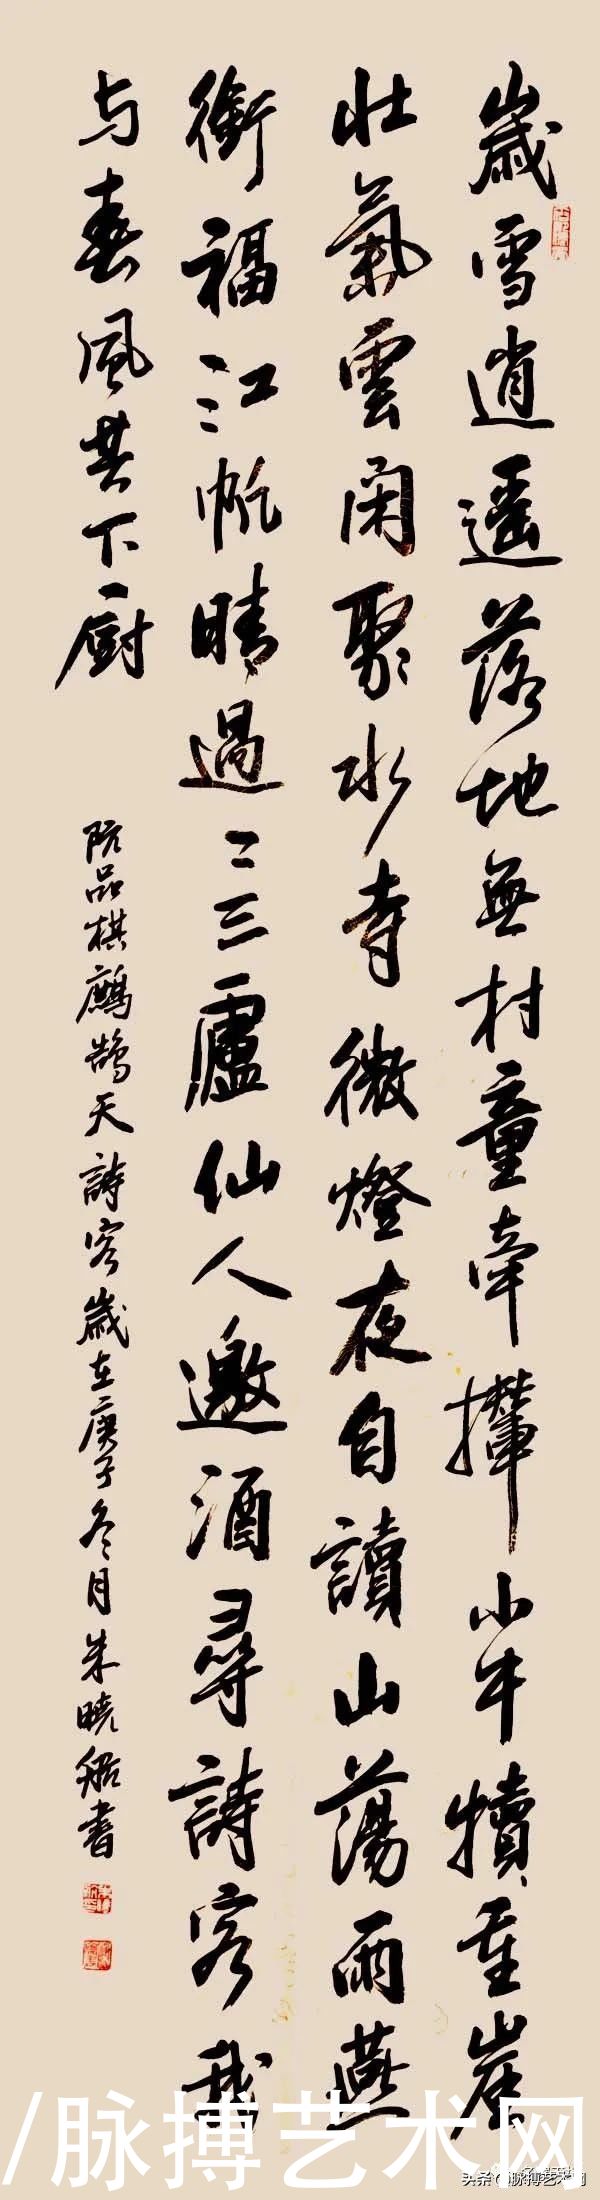 歲雪逍遥落地無村童牽攆小牛犢重崖
壯氣雲閑聚水寺微燈夜自讀山蕩雨燕
銜福江帆晴過二三廬仙人邀酒尋詩客我
与春風共下廚
阮品棋鷓鴣天詩客歲在庚子冬月朱曉船書
/脉搏艺术网
头条@脉搏艺术网